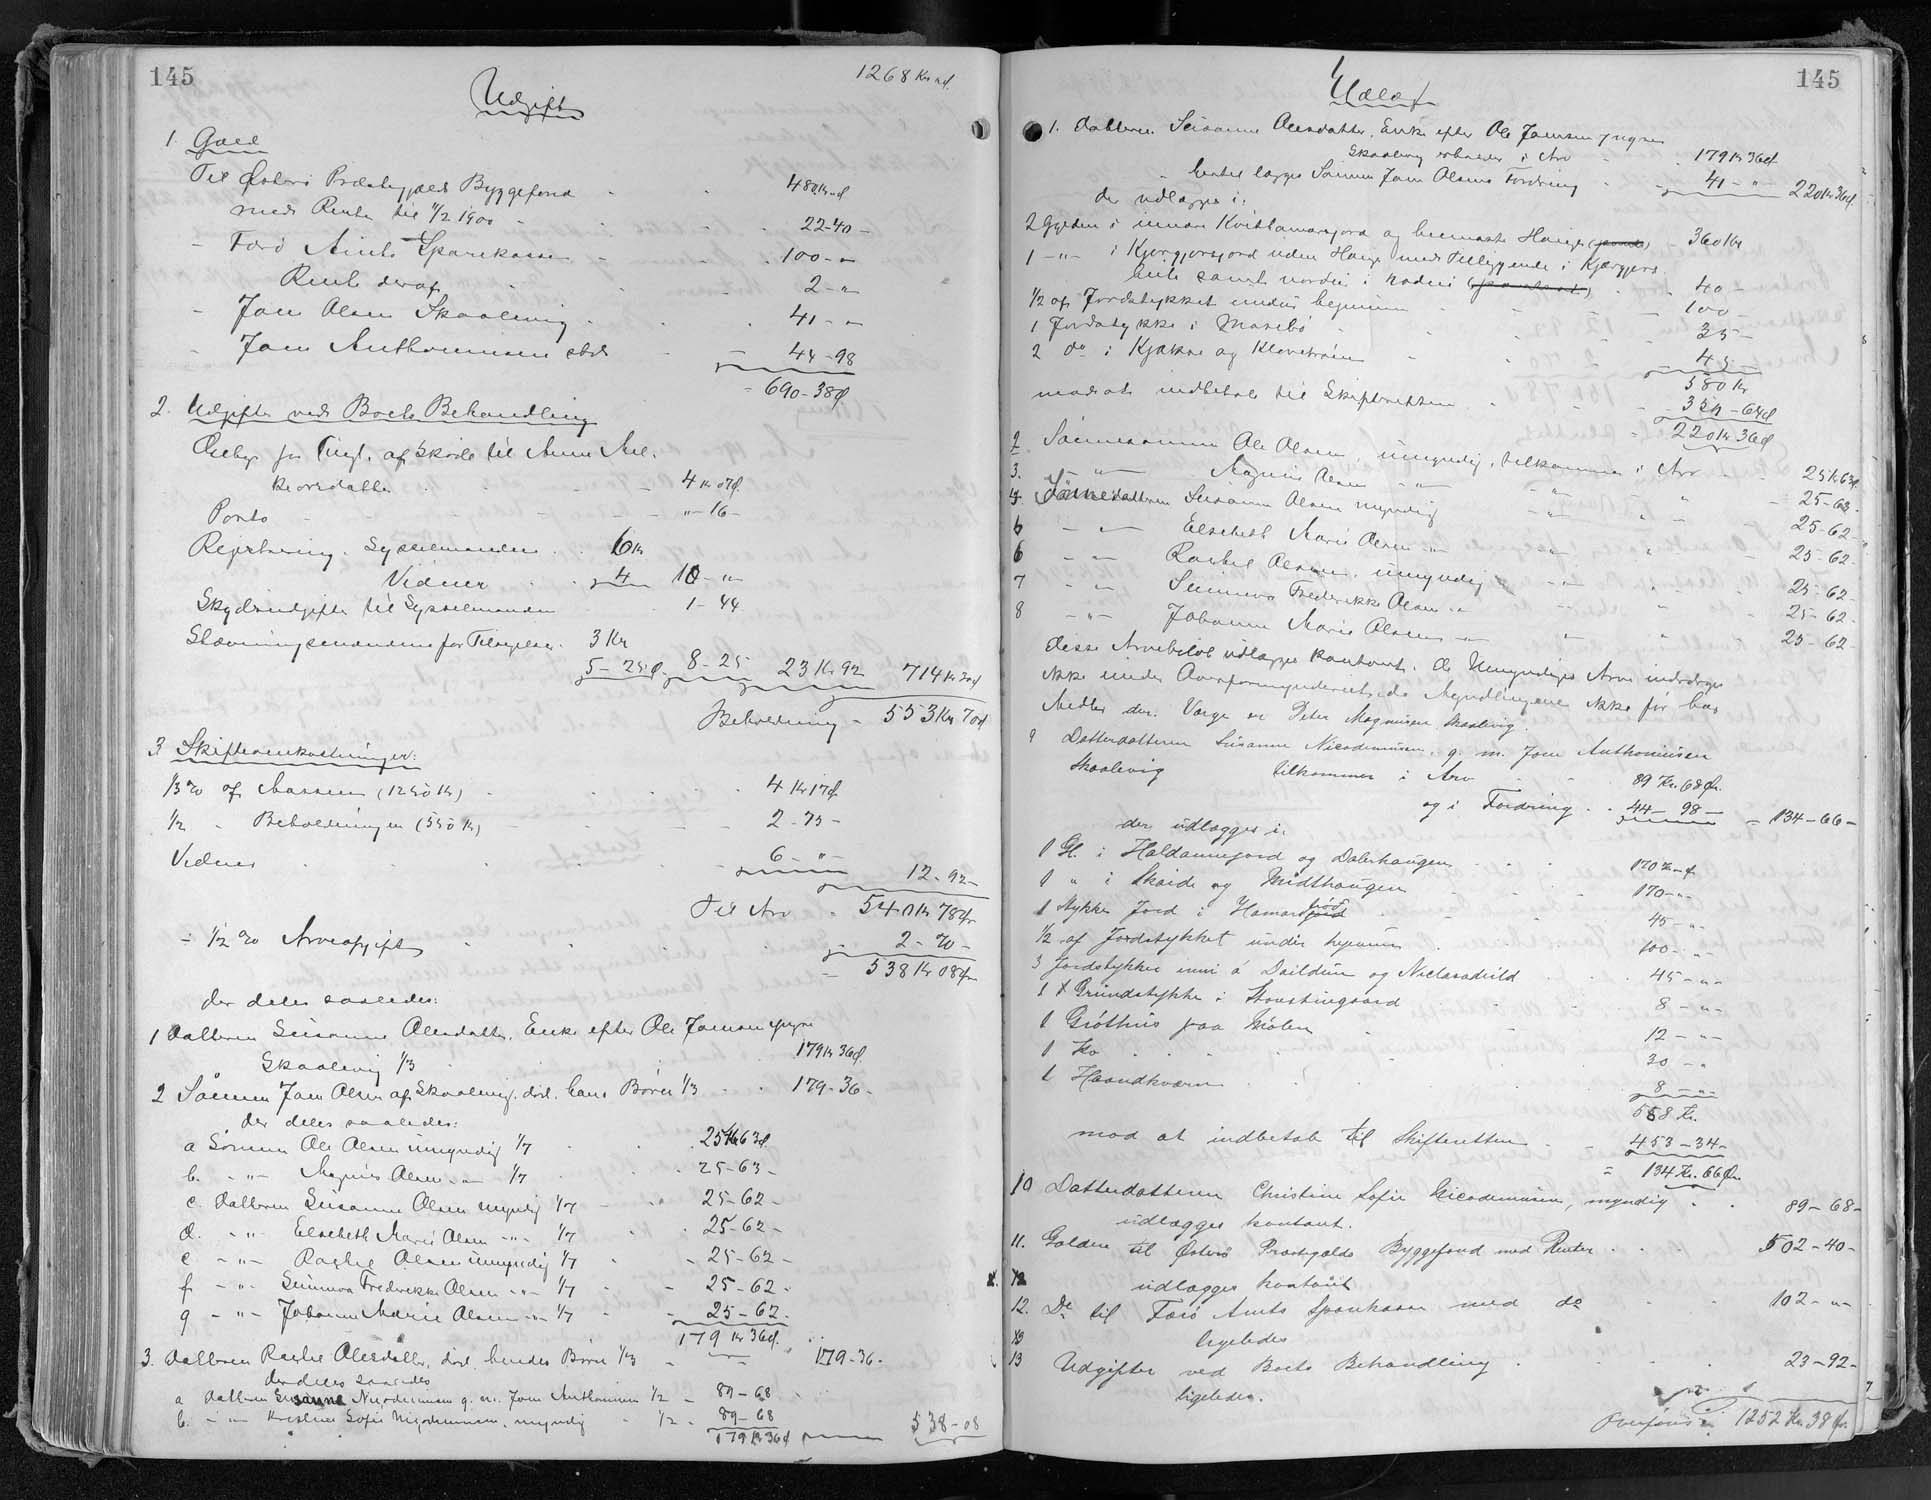 145
1268 Kr
Udgift
1. Gæld
Til Østerø Præstegjælds Byggefond - 480 Kr - Ø
med Rente til 11/2 1900 - 22-40-
- Færø Amts Sparekasse - 100 - "
Rente deraf - 2 - "
- Joen Olsen Skaalevig - 41 - "
- Joen Anthoniusen - 44-98
= 690-38Ø
2. Udgifter ved Boets Behandling
Gebyr for Tingl. af Skøde til Anne
4 Kr 07Ø.
Porto - " - 16 -
Rejsetæring. Sysselmanden 6 Kr
Vidner 4 10 - "
Skydsudgifter til Sysselmanden 1-44
Stævningsmændene for Tilsigelser. 3 Kr
5-25Ø 8-25 23 Kr 92 714 Kr 30Ø
Beholdning - 553 Kr 70Ø
3 Skifteomkostninger:
1/3 % af Massen (1250 Kr) 4 Kr 17Ø
1/2 - Beholdningen (550 Kr) 2-75-
Vidner 6 - " - 12-92-
Til Arv - 540 Kr 78Ør
÷ 1/2 % Arveafgift 2-70-
= 538 Kr 08Ør
der deles saaledes:
1 Datteren Susanne Olesdatter, Enke efter Ole Joensen yngre
Skaalevig 1/3 179 Kr 36Ø
2 Sønnen Joen Olsen af Skaalevig, død, hans Børn 1/3 - 179-36-
der deles saaledes:
a Sønnen Ole Olsen umyndig 1/7 25 Kr 63Ø
b. - " - Magnus Olsen - " - 1/7 25-63-
c. Datteren Susanne Olsen myndig 1/7 25-62-
d. - " - Elsebeth Marie Olsen - " - 1/7 25-62-
e - " - Rachel Olsen umyndig 1/7 - 25-62-
f - " - Sunneva Frederikke Olsen - " - 1/7 - 25-62-
g - " - Johanne Marie Olsen - " - 1/7 - 25-62-
179 Kr 36Ø
3. Datteren Rachel Olesdatter, død, hendes Børn 1/3 - 179-36-
der deles saaledes
a Datteren Susanne Nicodemusen g. m. Joen Anthoniusen 1/2 - 89-68
b. - " - Kristine Sofie Nicodemusen, myndig 1/2 - 89-68
179 Kr 36Ø 538-08
145
Udlæg
1. Datteren Susanne Olesdatter, Enke efter Ole Joensen yngre
Skaalevig tilkommer i Arv 179 Kr 36Ø
hertil lægges Sønnen Joen Olsens Fordring - 41 - " - 220 Kr 36Ø
der udlægges i:
2 Gylden i innara Kvittamarsjord og heemasta Hauge 360 Kr
1 - " - i Kjergjorsjord uden Hauge med Tilliggende i Kjærgjors
40 -
1/2 af Jordstykket undir hejunum 100 -
1 Jordstykke i Marebø 35 -
2 do i Kjækse og 45 -
580 Kr
mod at indbetale til Skifteretten 359-64Ø
= 220 Kr 36Ø
2 Sønnesønnen Ole Olsen, umyndig, tilkommer i Arv 25 Kr 63Ø
3. - " - Magnus Olsen - " - 25-63-
4. Sønnedatteren Susanne Olsen myndig - " - 25-62-
5 - " - Elsebeth Marie Olsen - " - 25-62-
6 - " - Rachel Olsen, umyndig - " - 25-62-
7 - " - Sunneva Frederikke Olsen - " - 25-62-
8 - " - Johanne Marie Olsen - " - 25-62-
Disse Arvebeløb udlægges kontant. De Umyndiges Arv inddrages
ikke under Overformynderiet, da Myndlingene ikke før har
Midler der. Værge er Peter Magnusen Skaalevig.
9 Datterdatteren Susanne Nicodemusen, g. m. Joen Anthoniusen
Skaalevig tilkommer i Arv 89 Kr. 68Ør.
og i Fordring 44-98- = 134-66-
der udlægges i:
1 Gl. i Haldannejord og Dalerhaugen 170 Kr - Ø
1 " i Skaide og Midthaugen 170 - " -
1 Stykke Jord i 45 - " -
1/2 af Jordstykket undir hejunum 100 - " -
3 Jordstykker inni á Daildum og 45 - " -
1 Grundstykke i 8 - " -
1 Gróthus paa Mølen 12 - " -
1 Ko 30 - "
1 Haandkværn 8 - " -
588 Kr.
mod at indbetale til Skifteretten - 453-34-
= 134 Kr. 66Ør.
10 Datterdatteren Christine Sofie Nicodemusen, myndig 89-68-
udlægges kontant.
11. Gælden til Østerø Præstegjælds Byggefond med Renter 502-40-
udlægges kontant
12. Do til Færø Amts Sparekasse med do 102 - " -
ligeledes
13 Udgifter ved Boets Behandling 23-92-
ligeledes.
Overføres 1252 Kr. 38Ør.